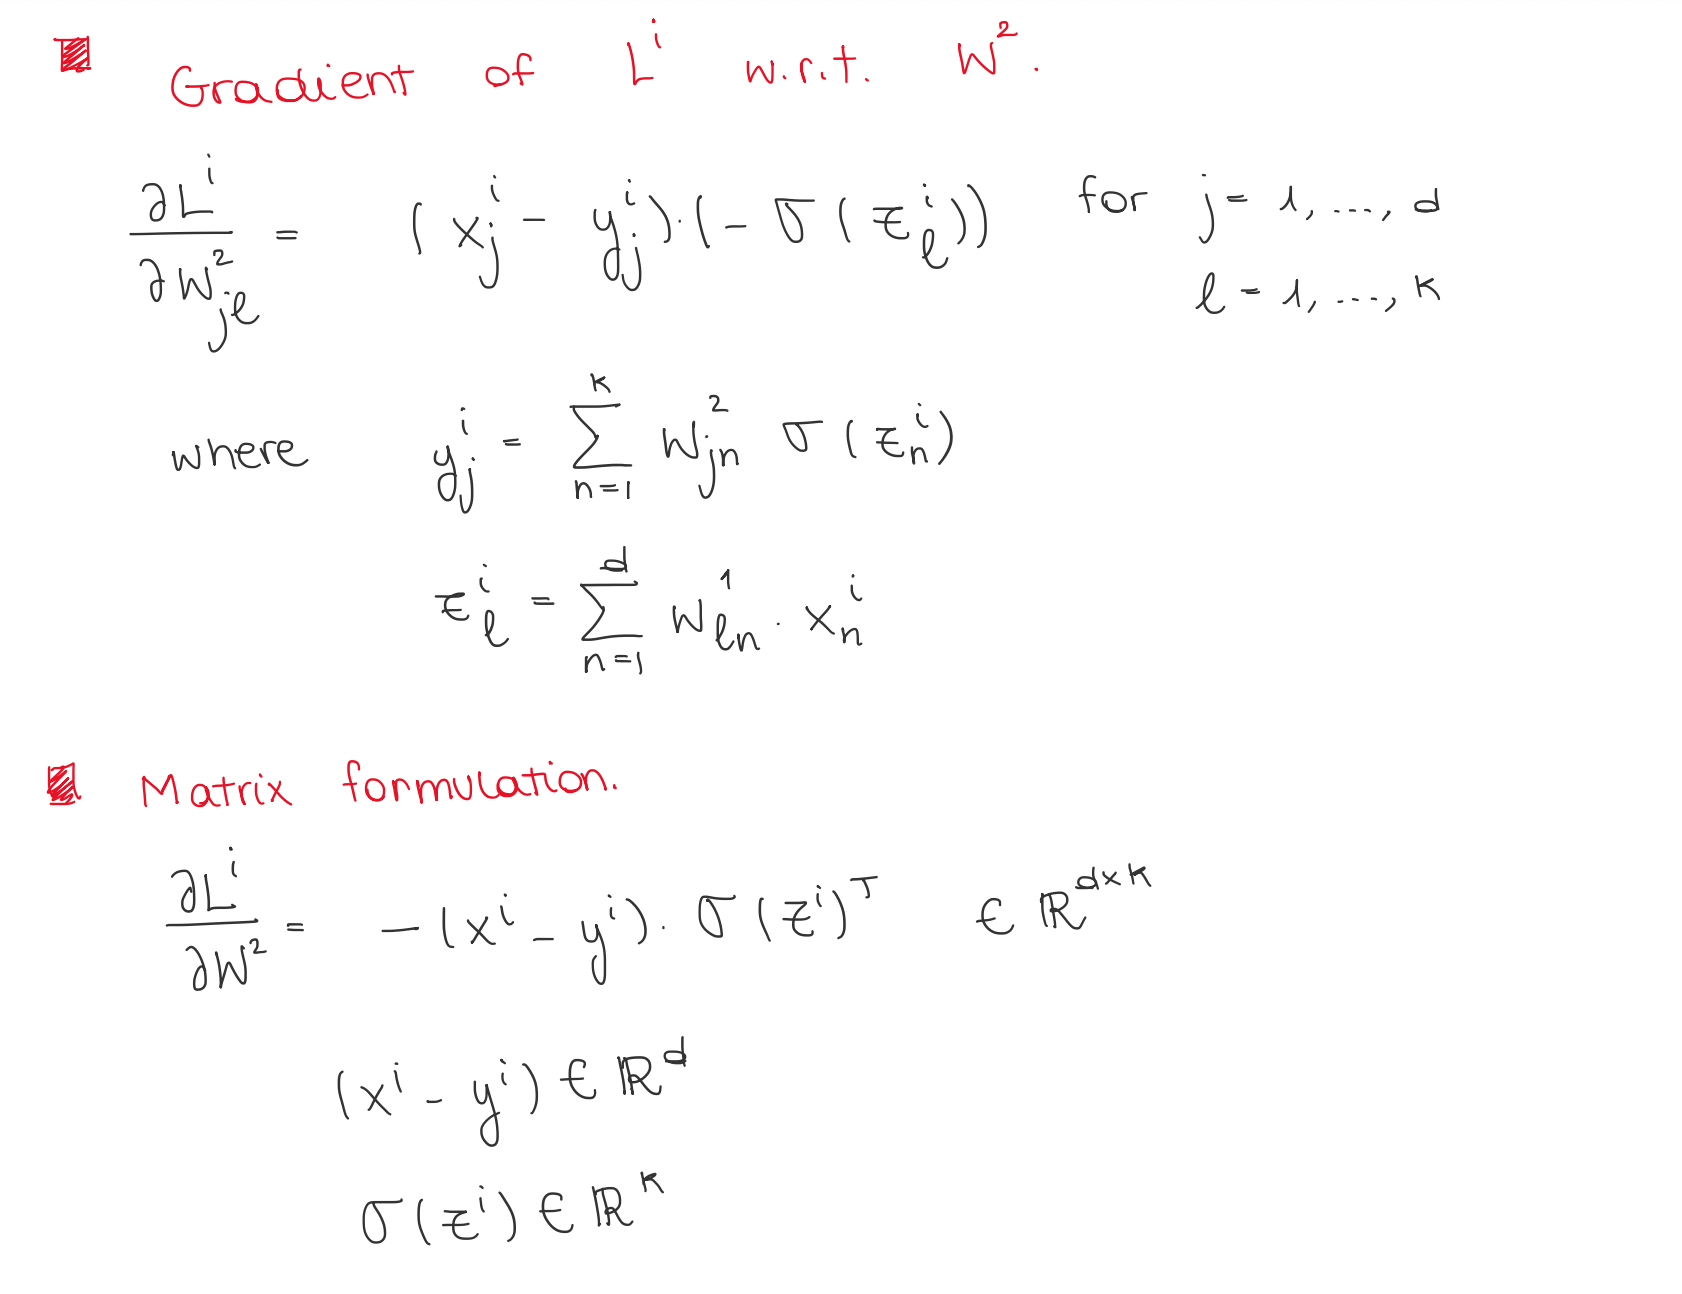 Gradient of Lⁱ w.r.t. W².
∂Lⁱ/∂W²ⱼₗ = (xⱼⁱ - yⱼⁱ)·(- σ(zₗⁱ)) for j = 1, ..., d
l = 1, ..., k
where yⱼⁱ = ∑ₙ₌₁ᵏ W²ⱼₙ σ(zₙⁱ)
zₗⁱ = ∑ₙ₌₁ᵈ W¹ₗₙ · xₙⁱ
Matrix formulation.
∂Lⁱ/∂W² = -(xⁱ - yⁱ) · σ(zⁱ)ᵀ ∈ ℝᵈˣᵏ
(xⁱ - yⁱ) ∈ ℝᵈ
σ(zⁱ) ∈ ℝᵏ